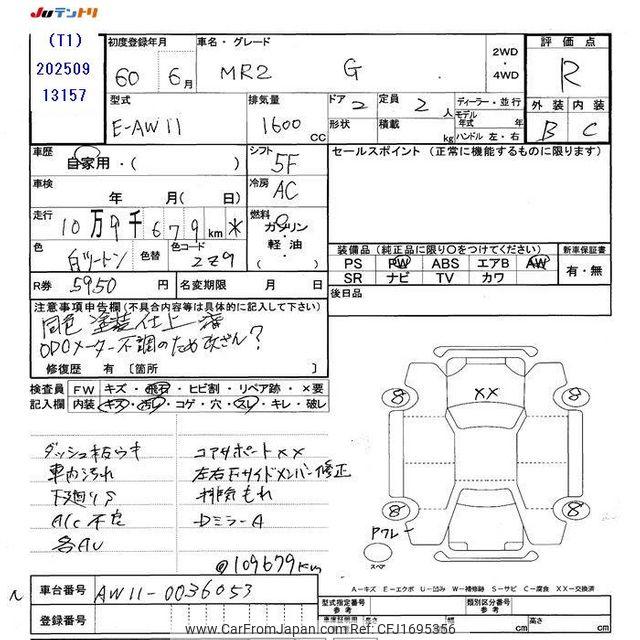 JUテントリ
(T1)
202509
13157
初度登録年月
60 6月
車名・グレード
MR2 G
2WD
・
4WD
評価点
R
型式
E-AW11
排気量
1600 CC
ドア 2
定員 2 人
形状
積載 kg
ディーラー・並行
モデル年式 年
ハンドル 左・右
外装 内装
B C
車歴
自家用・( )
シフト
5F
セールスポイント (正常に機能するものに限ります)
車検
年 月( 日)
冷房
AC
走行
10万9千679km *
燃料
ガソリン
軽油・
( )
色
白ツートン
色替
色コード
2Z9
装備品(純正品に限り○をつけてください)
PS PW ABS エアB AW
SR ナビ TV カワ
新車保証書
有・無
R券 5950円
名変期限 年 月 日
後日品
注意事項申告欄(不具合内容等は具体的に記入して下さい)
同色 塗装仕上済
ODOメーター不調のため改ざん?
修復歴 有 [箇所 ]
検査員
記入欄
FW キズ・飛石・ヒビ割・リペア跡・×要
内装 キズ・汚レ・コゲ・穴・スレ・キレ・破レ
ダッシュ板ウキ
車内汚れ
下廻りS
A/C不良
各AU
コアサポートXX
左右Fサイドメンバー修正
排気もれ
Dミラ-A
@109679km
8 8
XX
8 8
Pクレー
スペア
車台番号 AW11-0036053
登録番号
A-キズ E-エクボ U-凹み W-補修跡 S-サビ C-腐食 XX-交換済
型式指定番号
参考
類別区分番号
参考
車庫証明用
長さ cm
幅 cm
高さ cm
www.CarFromJapan.com Ref: CFJ1695356